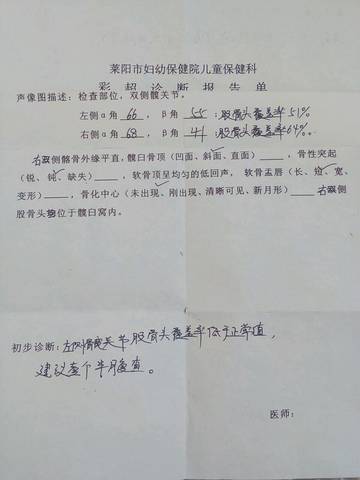 莱阳市妇幼保健院儿童保健科
彩超诊断报告单
声像图描述：检查部位，双侧髋关节。
左侧α角 66 ，β角 55 ：股骨头覆盖率51%
右侧α角 68 ，β角 41 股骨头覆盖率64%.
右双侧髂骨外缘平直，髋臼骨顶（凹面、斜面、直面）____，骨性突起
（锐、钝、缺失）____，软骨顶呈均匀的低回声，软骨盂唇（长、短、宽、
变形）____，骨化中心（未出现、刚出现、清晰可见、新月形）____右双侧
股骨头均位于髋臼窝内。
初步诊断：左侧髋关节股骨头覆盖率低于正常值，
建议 个半月 查。
医师：